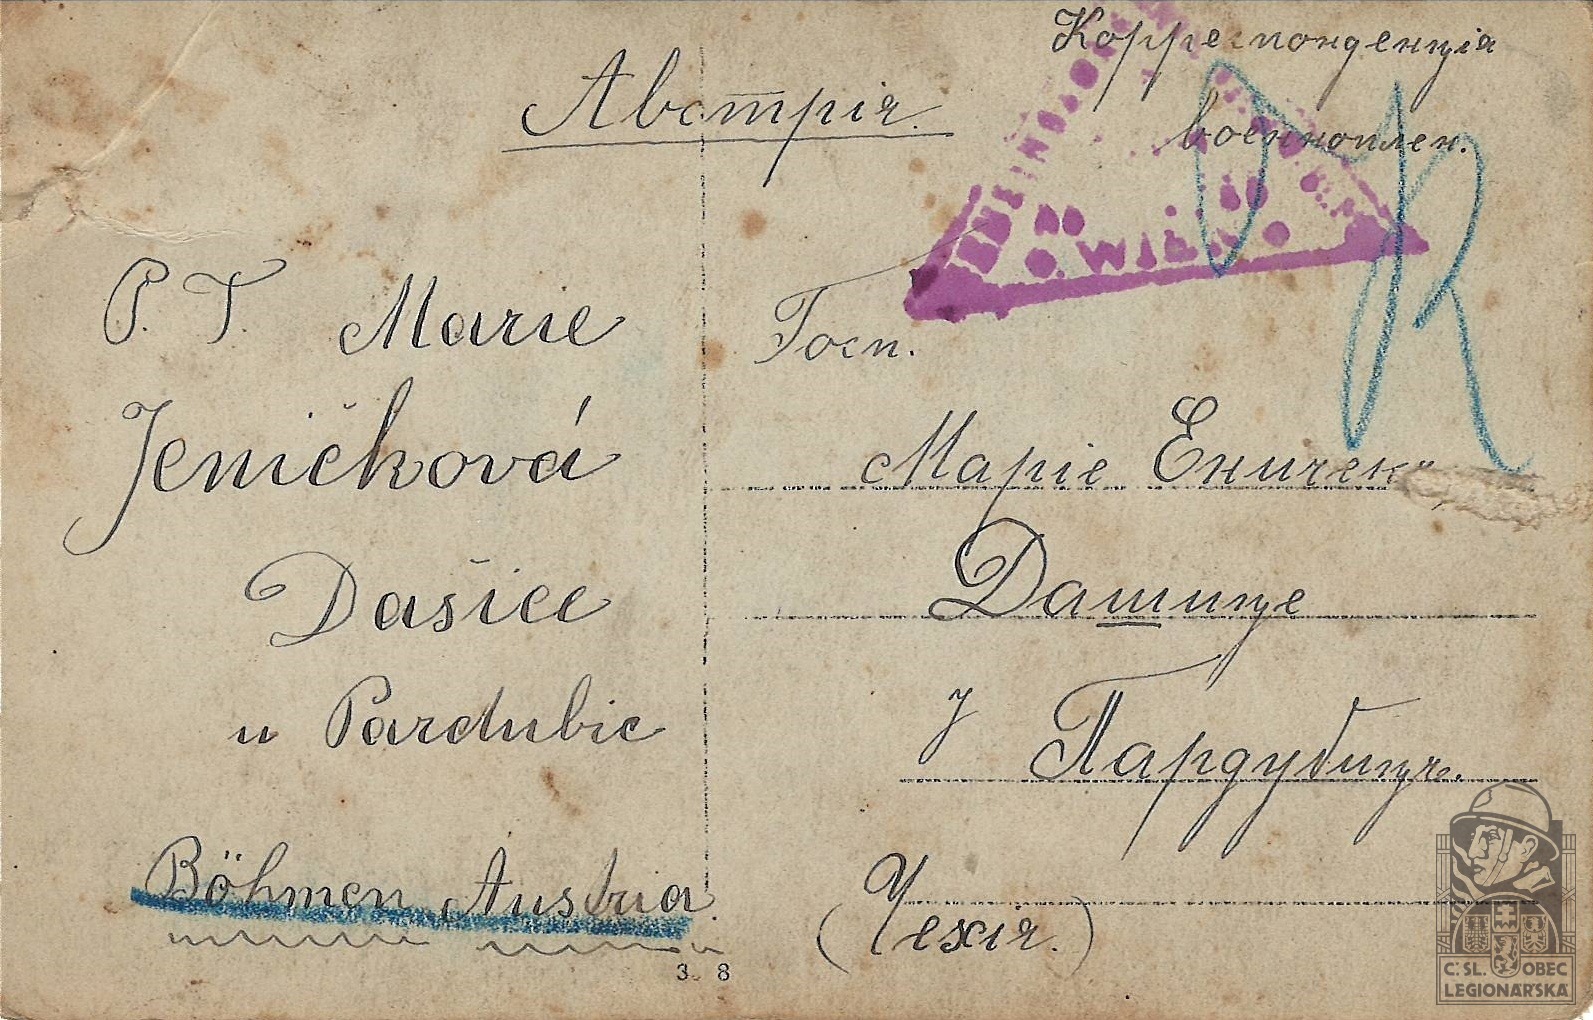 Корреспонденція
военноплен.
Австрія.
P. T. Marie
Jeničková
Dašice
u Pardubic
Böhmen Austria.
Госп.
Маріе Еничек
Дашице
у Пардубицъ.
(Чехія.)
WIEN
3 8
Č. SL. OBEC
LEGIONÁŘSKÁ